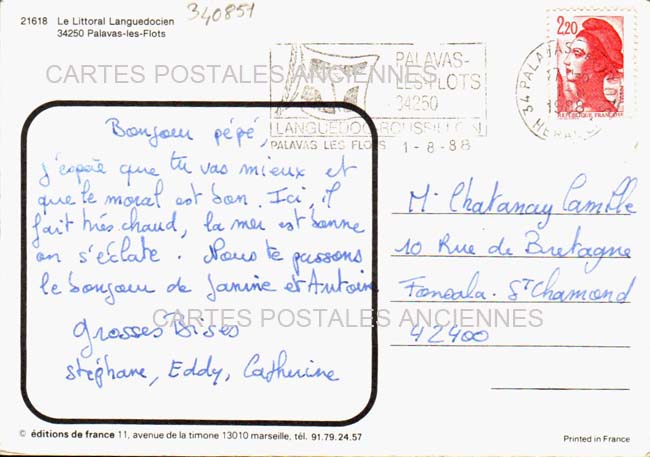 340851
21618 Le Littoral Languedocien
34250 Palavas-les-Flots
2,20
REPUBLIQUE FRANÇAISE
PALAVAS-
LES-FLOTS
34250
LANGUEDOC ROUSSILLON
PALAVAS LES FLOTS 1-8-88
34 PALAVAS
1988
HERAULT
CARTES POSTALES ANCIENNES
Bonjour pépé,
j'espère que tu vas mieux et
que le moral est bon. Ici, il
fait très chaud, la mer est bonne
on s'éclate. Nous te passons
le bonjour de Janine et Antoine
Grosses Bises
Stéphane, Eddy, Catherine
Mr Chatanay Camille
10 Rue de Bretagne
Fonsala. St Chamond
42400
CARTES POSTALES ANCIENNES
© éditions de france 11, avenue de la timone 13010 marseille, tél. 91.79.24.57
Printed in France